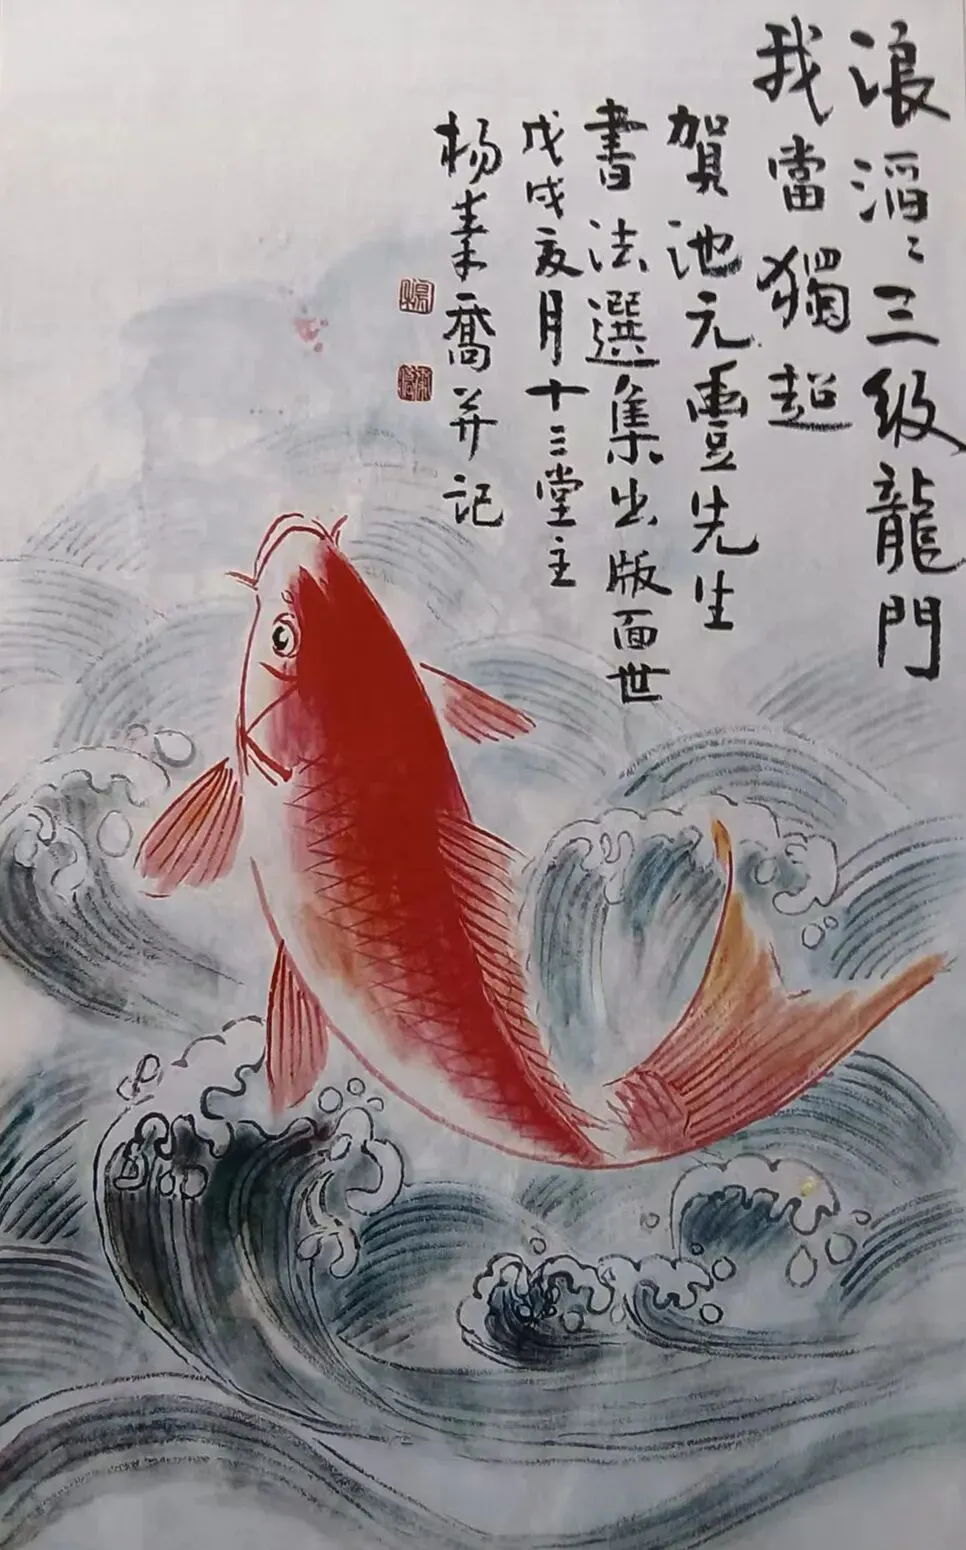 浪滔〻三级龍門
我當獨超
賀池元先生
書法選集出版面世
戊戌亥月十三堂主
杨喬并记